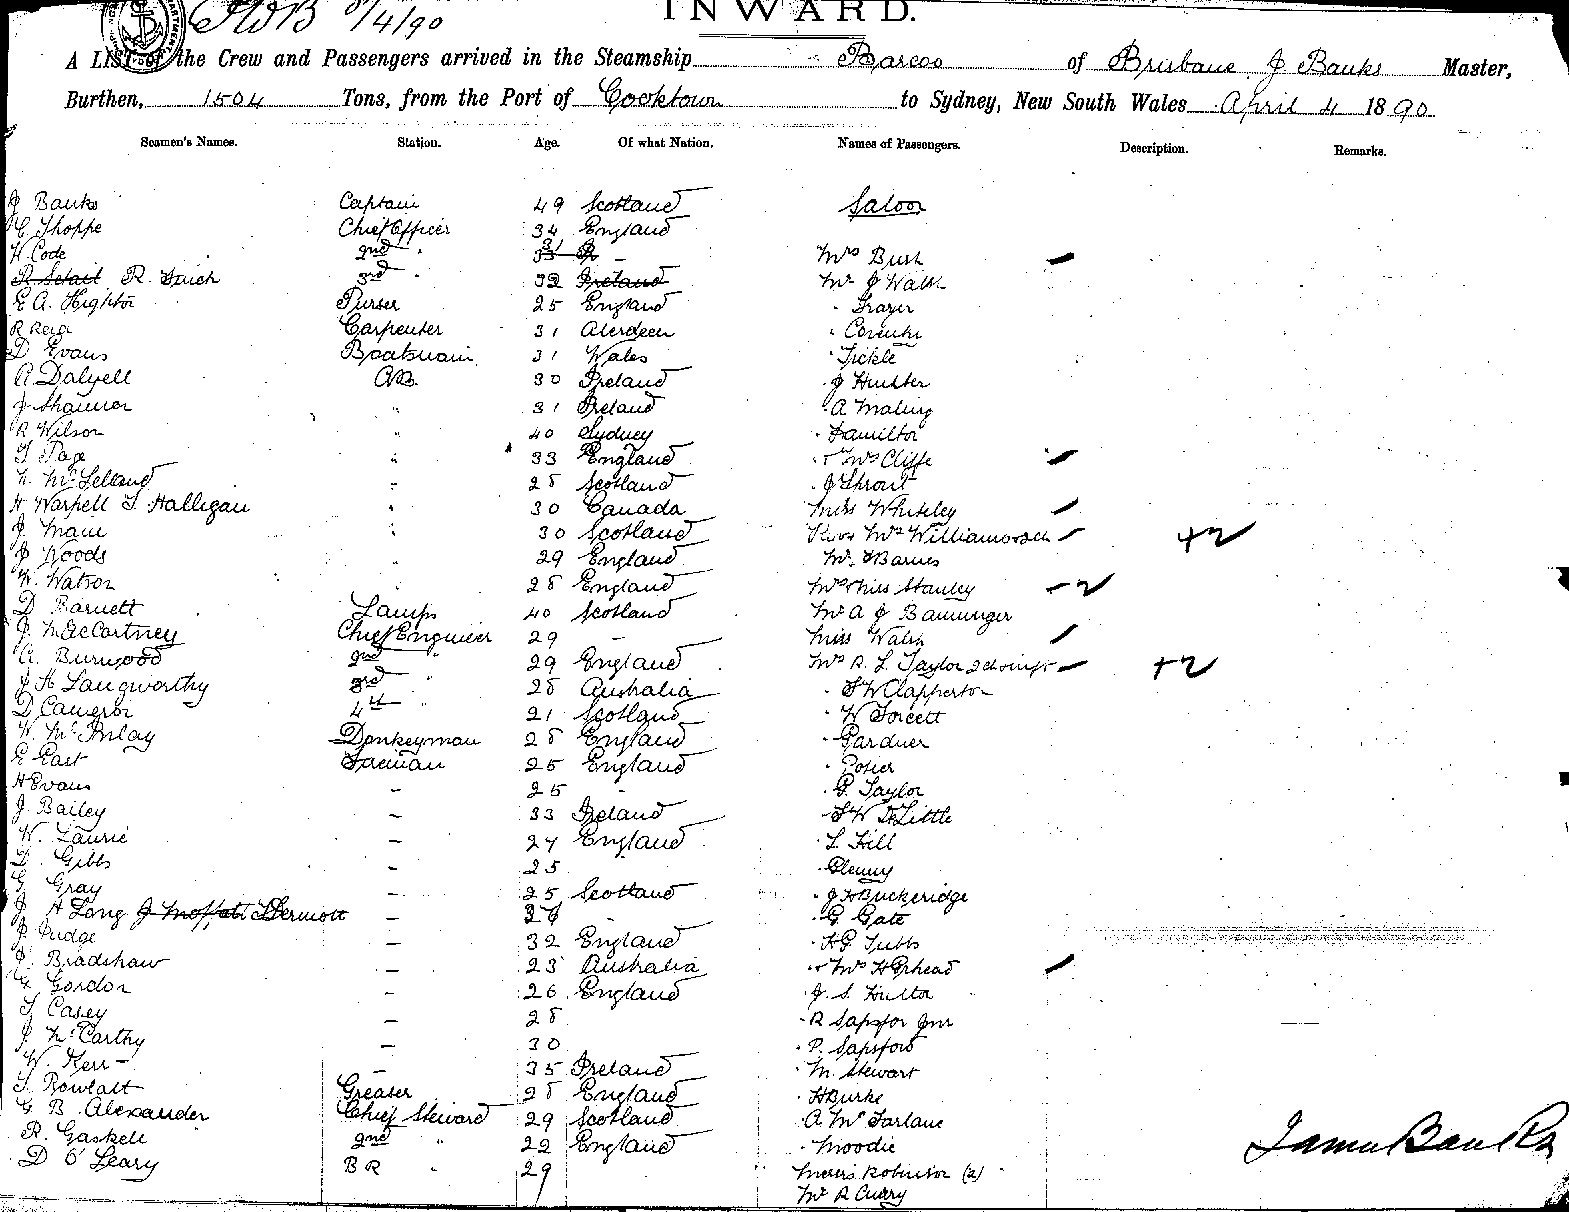 8/4/90
INWARD.
A LIST of the Crew and Passengers arrived in the Steamship Barcoo of Brisbane, J Banks Master,
Burthen, 1504 Tons, from the Port of Cooktown to Sydney, New South Wales April 4 1890
Seamen's Names. Station. Age. Of what Nation. Names of Passengers. Description. Remarks.
J Banks Captain 49 Scotland Saloon
C Thoppe Chief Officer 34 England
H. Code 2nd " 31 - Mrs Bush
R. 3rd " 32 Ireland Mr J Walsh
E A. Highton Purser 25 England " Frazer
R Reid Carpenter 31 Aberdeen
D Evans Boatswain 31 Wales " Tickle
A. Dalyell AB. 30 Ireland " J Hunter
J. " 31 Ireland " A Maling
R Wilson " 40 Sydney " Hamilton
T Page " 33 England " + Mrs Cliffe
N. McLelland " 28 Scotland " J Sprout
H Warpell T. Halligan " 30 Canada Miss Whiteley
J. Main " 30 Scotland Mrs Williamson + 2
J Woods " 29 England Mr. Barnes
W. Watson " 28 England Mrs + Miss Stanley - 2
D Barnett Lamps 40 Scotland Mr A J
J. MacCartney Chief Engineer 29 - Miss Walsh
A. Burwood 2nd " 29 England Mrs R. L. Taylor + 2
J H Langworthy 3rd " 28 Australia " S W Clapperton
D Cameron 4th " 21 Scotland " W Forcett
W. McInlay Donkeyman 28 England " Gardner
E East Fireman 25 England " Posier
H Evans - 25 - " G. Taylor
J. Bailey - 33 Ireland " S W D Little
W. Laurie - 27 England " L Hill
D. Gibbs - 25 " Glenny
G Gray - 25 Scotland " J H Buckeridge
J H Long J Moffatt Dermott - 26 - " G. Gate
J. Judge - 32 England " H G Tubbs
J. Bradshaw - 23 Australia " + Mrs Hephead
G Gordon - 26 England " J. S. Hulton
T. Casey - 28 " R Sapsford Jnr
J McCarthy - 30 " P. Sapsford
W. Kerr - 35 Ireland " M. Stewart
T. Rowlatt Greaser 28 England " H Burke
G B. Alexander Chief Steward 29 Scotland " A. McFarlane
R. Gaskell 2nd " 22 England " Moodie
D O'Leary B R " 29 Messrs Robinson (2)
Mr R Curry
James Banks